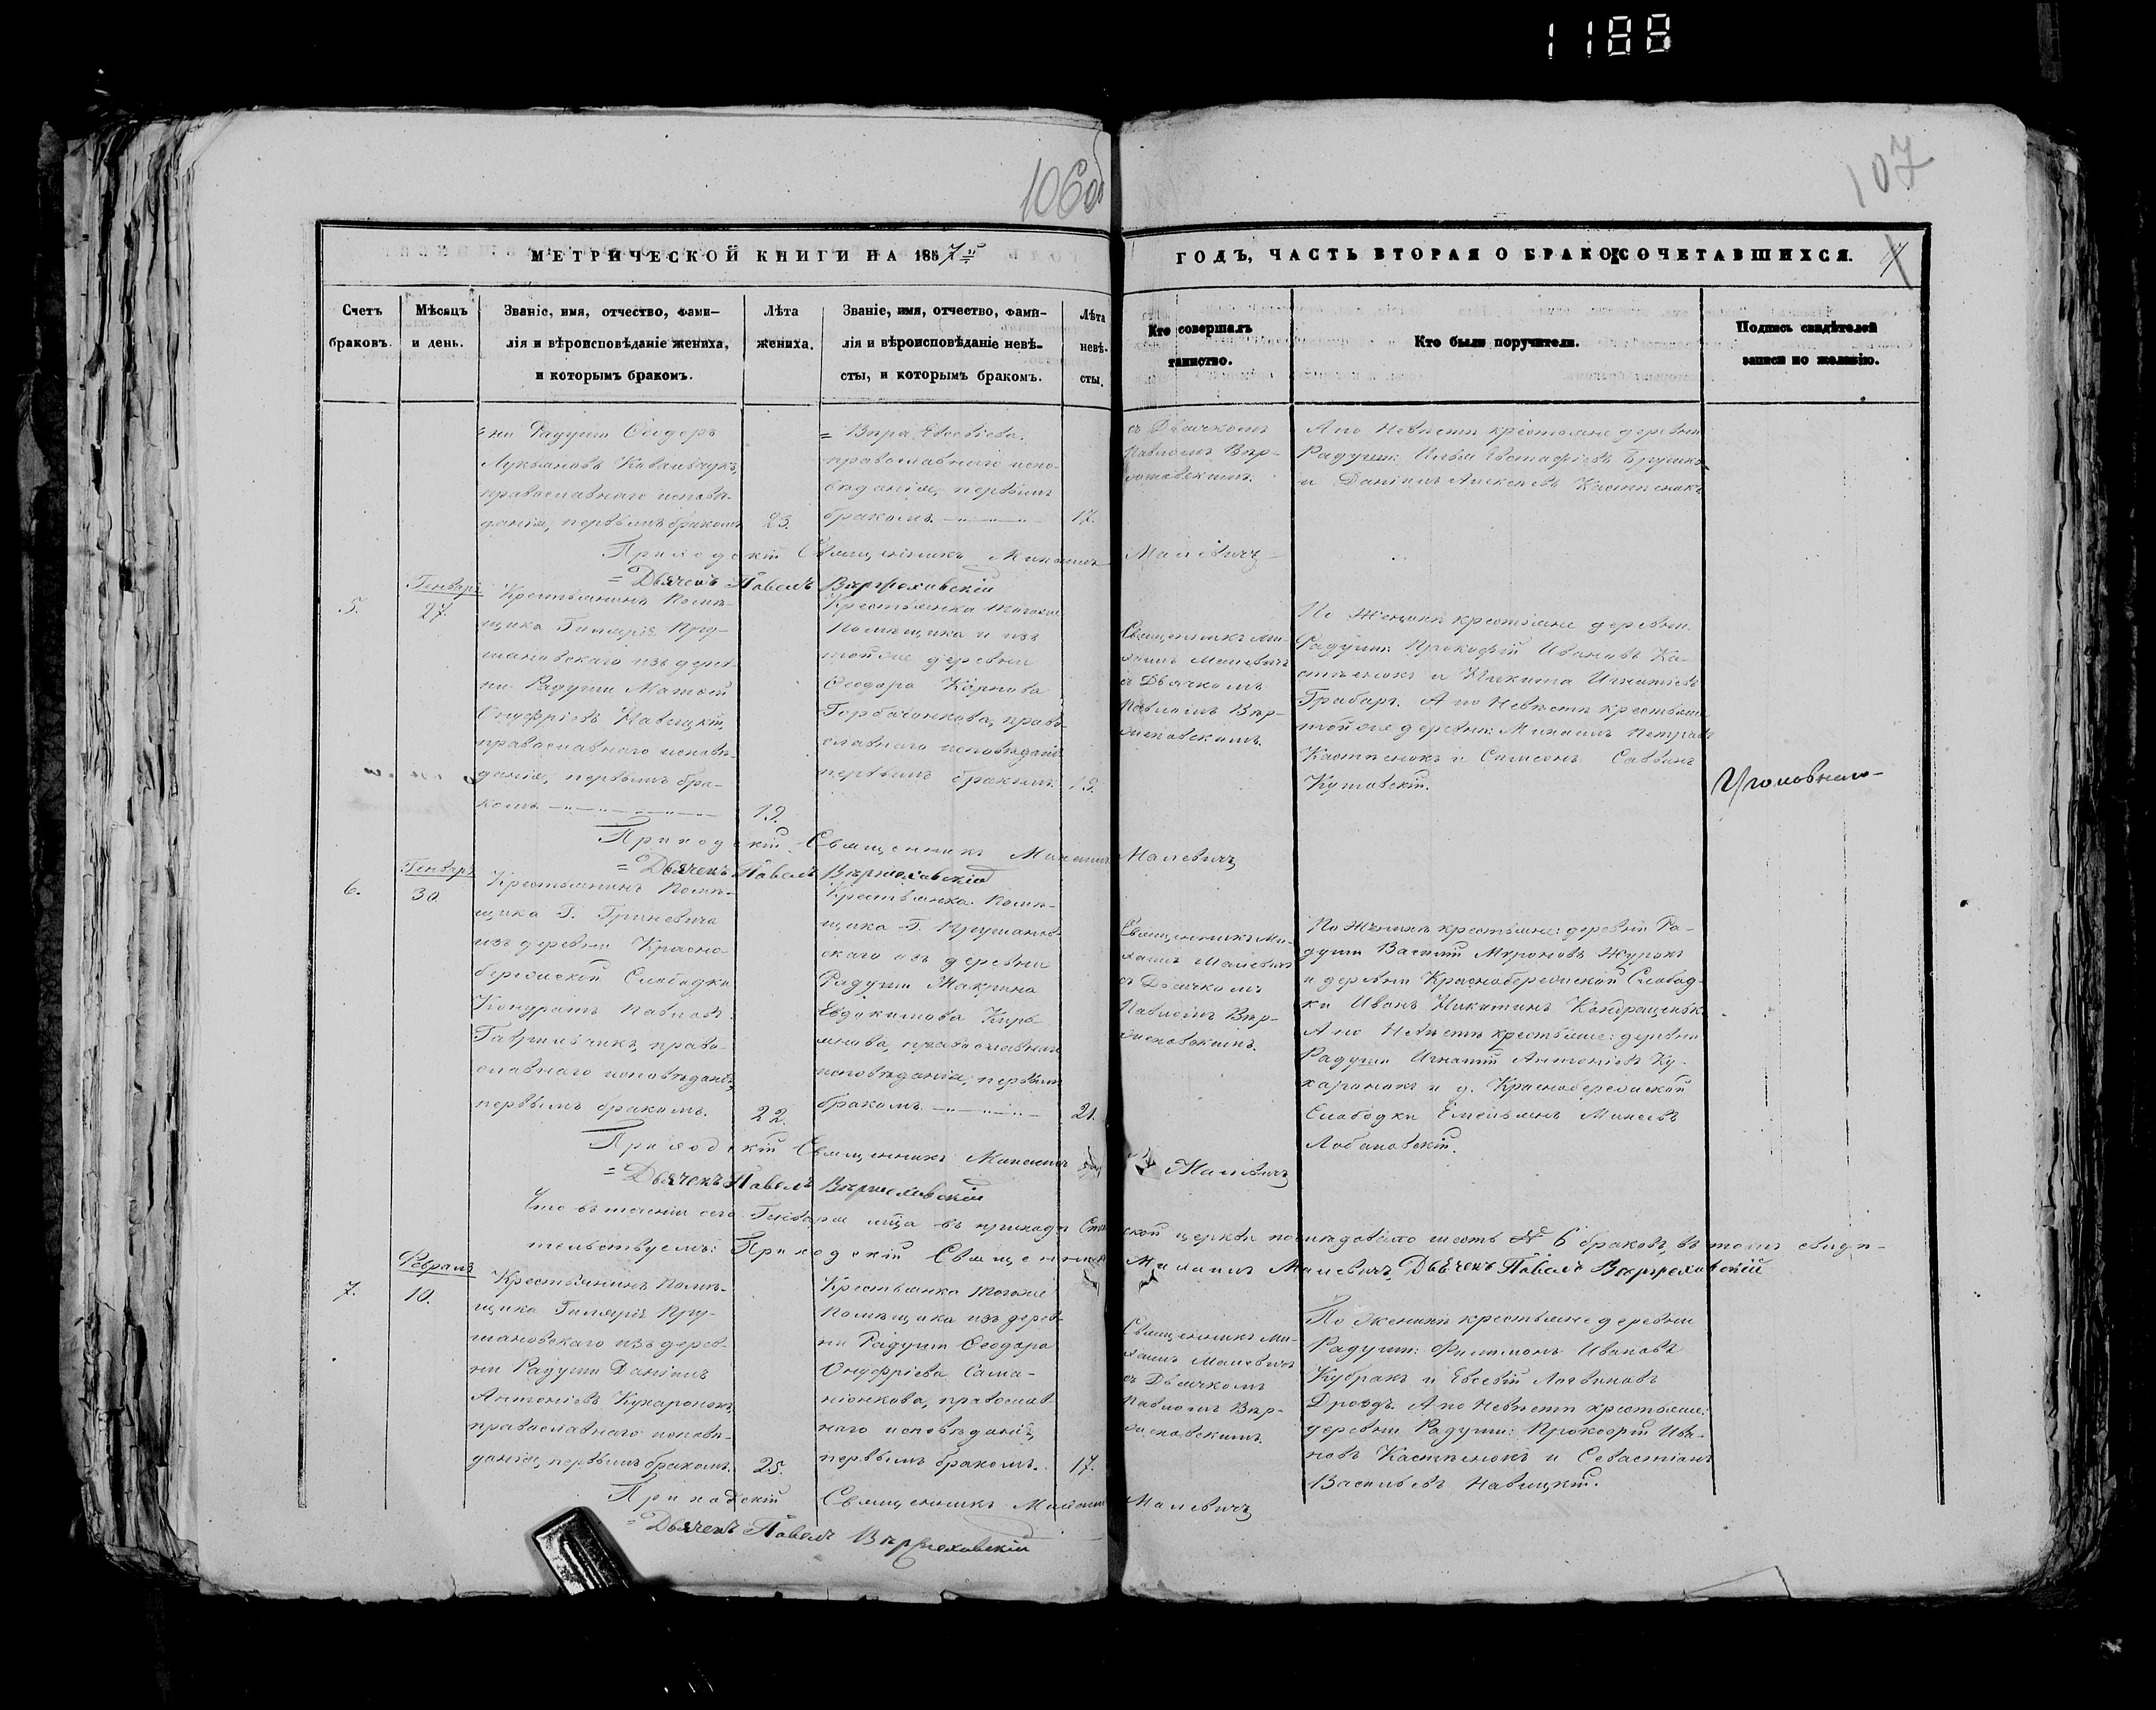 1188
106об
107
МЕТРИЧЕСКОЙ КНИГИ НА 1857й
ГОДЪ, ЧАСТЬ ВТОРАЯ О БРАКОСОЧЕТАВШИХСЯ.
Счетъ
браковъ.
Мѣсяцъ
и день.
Званіе, имя, отчество, фами-
лія и вѣроисповѣданіе жениха,
и которымъ бракомъ.
Лѣта
жениха.
Званіе, имя, отчество, фами-
лія и вѣроисповѣданіе невѣ-
сты, и которымъ бракомъ.
Лѣта
невѣ-
сты.
Кто совершалъ
таинство.
Кто были поручители.
Подпись свидѣтелей
записи по желанію.
ни Радуши Ѳеодоръ
Лукьяновъ Ковальчукъ,
православнаго исповѣ-
данія, первымъ бракомъ
23.
= Вѣра Евсевіева,
православнаго испо-
вѣданія, первымъ
бракомъ.
17.
съ Дьячкомъ
Павломъ Вѣр-
А по Невѣстѣ крестьяне деревни
Радуши: Илья Евстафіевъ
и Даніилъ Алексѣевъ Кастѣснокъ
Приходскій Священникъ Михаилъ Малевичъ
= Дьячекъ Павелъ
5.
Генваря
27.
Крестьянинъ Помѣ-
щика Гиларія Пру-
шановскаго изъ дерев-
ни Радуши Матѳей
Онуфріевъ Навицкій,
православнаго исповѣ-
данія, первымъ бра-
комъ
19.
Крестьянка тогоже
Помѣщика и изъ
тойже деревни
Ѳеодора
Горбачонкова, право-
славнаго исповѣданія
первымъ бракомъ.
19.
Священникъ Ми-
хаилъ Малевичъ
съ Дьячкомъ
Павломъ Вѣр-
По Женихѣ крестьяне деревни
Радуши: Прокофій Ивановъ Ка-
стѣснокъ и Никита Игнатіевъ
Грабаръ. А по Невѣстѣ крестьяне
тойже деревни: Михаилъ Петровъ
Кастѣснокъ и Симеонъ Саввинъ
Кутовскій.
Уголовнаго
Приходскій Священникъ Михаилъ Малевичъ
= Дьячекъ Павелъ
6.
Генваря
30.
Крестьянинъ Помѣ-
щика Г. Гриневича
изъ деревни Красно-
бережской Слободки
Кондратъ Павловъ
Гаврильчикъ, право-
славнаго исповѣданія,
первымъ бракомъ.
22.
Крестьянка Помѣ-
щика Г. Прушанов-
скаго изъ деревни
Радуши Макрина
Евдокимова Кирь-
янова, православнаго
исповѣданія, первымъ
бракомъ.
21.
Священникъ Ми-
хаилъ Малевичъ
съ Дьячкомъ
Павломъ Вѣр-
По Женихѣ крестьяне: деревни Ра-
души Василій Мироновъ Журокъ
и деревни Краснобережской Слобод-
ки Иванъ Никитинъ
А по Невѣстѣ крестьяне: деревни
Радуши Игнатій Антоніевъ Ку-
харонокъ и д. Краснобережской
Слободки Емельянъ Моисеевъ
Лобановскій.
Приходскій Священникъ Михаилъ Малевичъ
= Дьячекъ Павелъ
Что въ теченіи сего Генваря мѣсяца въ приходѣ ской церкви послѣдовало шесть № 6 браковъ, въ томъ свидѣ-
тельствуемъ: Приходскій Священникъ Михаилъ Малевичъ, Дьячекъ Павелъ
7.
Февраля
10.
Крестьянинъ Помѣ-
щика Гиларія Пру-
шановскаго изъ дерев-
ни Радуши Даніилъ
Антоніевъ Кухаронокъ,
православнаго исповѣ-
данія, первымъ бракомъ.
25.
Крестьянка тогоже
Помѣщика изъ дерев-
ни Радуши Ѳеодора
Онуфріева Сама-
ніонкова, православ-
наго исповѣданія,
первымъ бракомъ.
17.
Священникъ Ми-
хаилъ Малевичъ
съ Дьячкомъ
Павломъ Вѣр-
По Женихѣ крестьяне деревни
Радуши: Филимонъ Ивановъ
Кубракъ и Евсевій Логвиновъ
Дроздъ. А по Невѣстѣ крестьяне:
деревни Радуши: Прокофій Ива-
новъ Кастѣснокъ и Севастіанъ
Васильевъ Навицкій.
Приходскій Священникъ Михаилъ Малевичъ
= Дьячекъ Павелъ